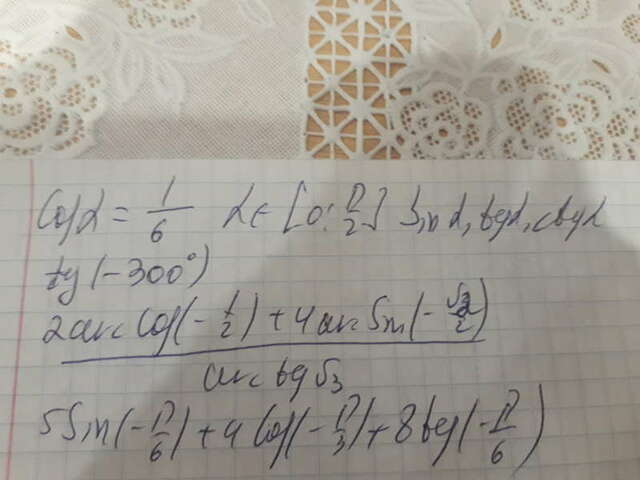 Cosα = 1/6 α ∈ [0; π/2] Sinα, tgα, ctgα
tg(-300°)
2arccos(-1/2) + 4arcsin(-√2/2)
arctg√3
5Sin(-π/6) + 4Cos(-π/3) + 8tg(-π/6)